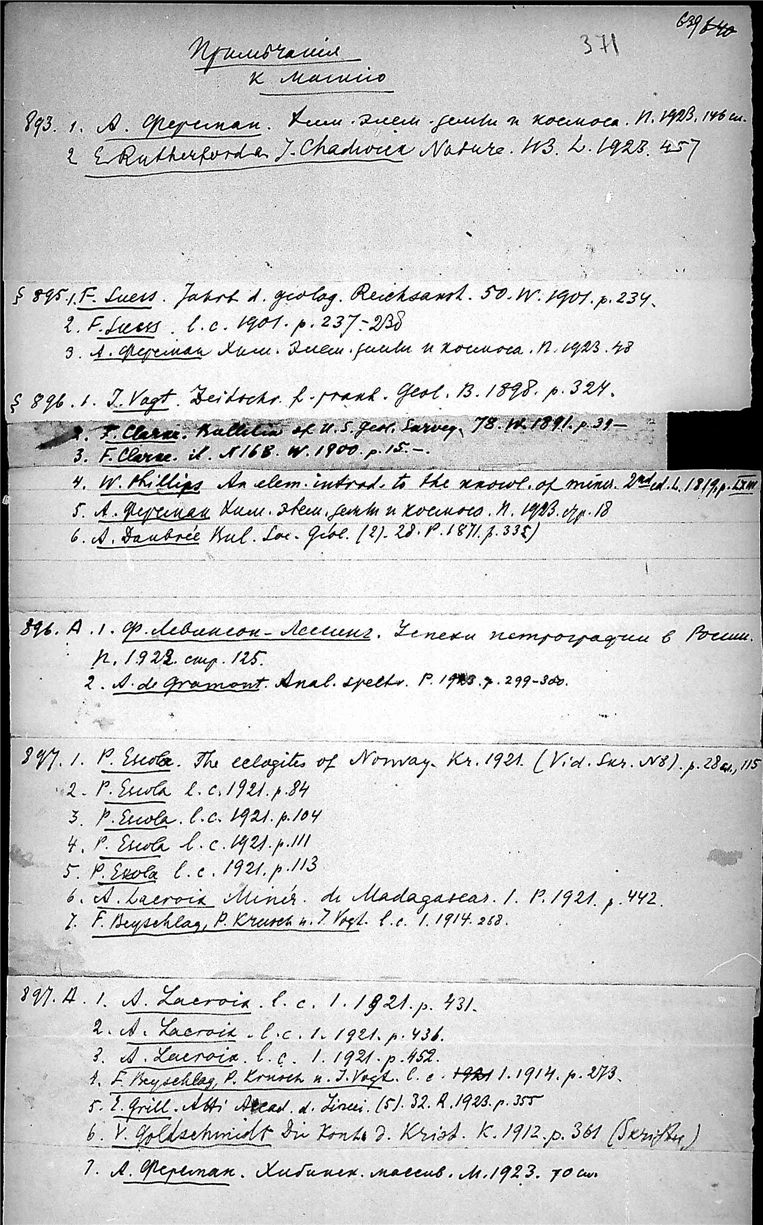 639 640
371
Примѣчанія
к магнію
893. 1. А. Ферсман. Хим. элем. земли и космоса. П. 1923. 146 сл.
2 E. Rutherford a. J. Chadwick Nature. 113. L. 1923. 457
§ 895. 1. F. Suess. Jahrb d. geolog. Reichsanst. 50. W. 1901. p. 234.
2. F. Suess. l. c. 1901. p. 237-238
3. А. Ферсман Хим. элем. земли и космоса. П. 1923. 48
§ 896. 1. J. Vogt. Zeitschr. f. prakt. Geol. B. 1898. p. 324.
2. F. Clarke. Bulletin of U.S. geol. Survey. 78. W. 1891. p. 39—
3. F. Clarke. ib. N 168. W. 1900. p. 15.—.
4. W. Phillips An elem. introd. to the knowl. of miner. 2nd ed. L. 1819. p.
5. А. Ферсман Хим. элем. земли и космоса. П. 1923. стр. 18
6. A. Daubrée Bul. Soc. Géol. (2). 28. P. 1871. p. 335)
896. A. 1. Ф. Левинсон-Лессинг. Успехи петрографии в России.
П. 1923. стр. 125.
2. A. de Gramont. Anal. spectr. P. 1923. p. 299-300.
897. 1. P. Escola. The eclogites of Norway. Kr. 1921. (Vid. Skr. N8). p. 28 сл., 115
2. P. Escola l. c. 1921. p. 84
3. P. Escola. l. c. 1921. p. 104
4. P. Escola l. c. 1921. p. 111
5. P. Escola l. c. 1921. p. 113
6. A. Lacroix Minér. de Madagascar. I. P. 1921. p. 442.
7. F. Beyschlag, P. Krusch u. J. Vogt. l. c. I. 1914. 268.
897. A. 1. A. Lacroix. l. c. 1. 1921. p. 431.
2. A. Lacroix. l. c. 1. 1921. p. 436.
3. A. Lacroix. l. c. 1. 1921. p. 452.
4. F. Beyschlag, P. Krusch u. J. Vogt. l. c. 1921 1. 1914. p. 273.
5. E. Grill. Atti Accad. d. Lincei. (5). 32. R. 1923. p. 355
6. V. Goldschmidt Die Kont. d. Krist. K. 1912. p. 361 (Skrifter)
7. А. Ферсман. Хибинск. массив. М. 1923. 70 сл.